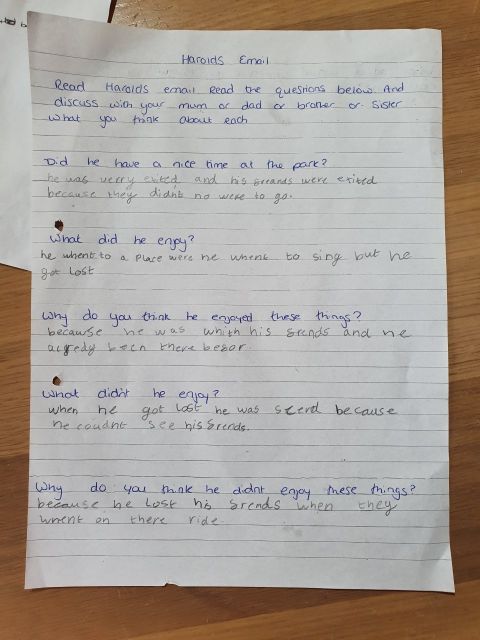 Harolds Email
Read Harolds email Read the questions below And
discuss with your mum or dad or brother or sister
What you think about each
Did he have a nice time at the park?
he was verry exited and his freands were exited
because they didnt no were to go.
What did he enjoy?
he whent to a place were he whent to sing but he
got lost
Why do you think he enjoyed these things?
because he was whith his frends and he
alredy been there befor.
What didn't he enjoy?
when he got lost he was scerd because
he coudnt see his frends.
Why do you think he didnt enjoy these things?
because he lost his frends when they
whent on there ride